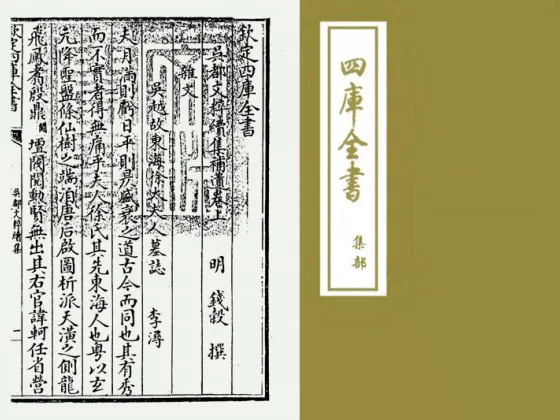 欽定四庫全書
吳都文粹續集補遺卷上
明 錢穀 撰
雜文
吳越故東海徐夫人墓誌 李潯
夫月滿則虧日平則昃盛衰之道古今而同也其有秀
而不實者得無痛乎夫人徐氏其先東海人也粵以玄
元降聖盤條仙樹之端洎唐后啟圖析派天潢之側龍
飛鳳翥殷鼎 闕 壇閥閱勳賢無出其右官諱軻任省營
欽定四庫全書
吳都文粹續集
一
四庫全書
集部